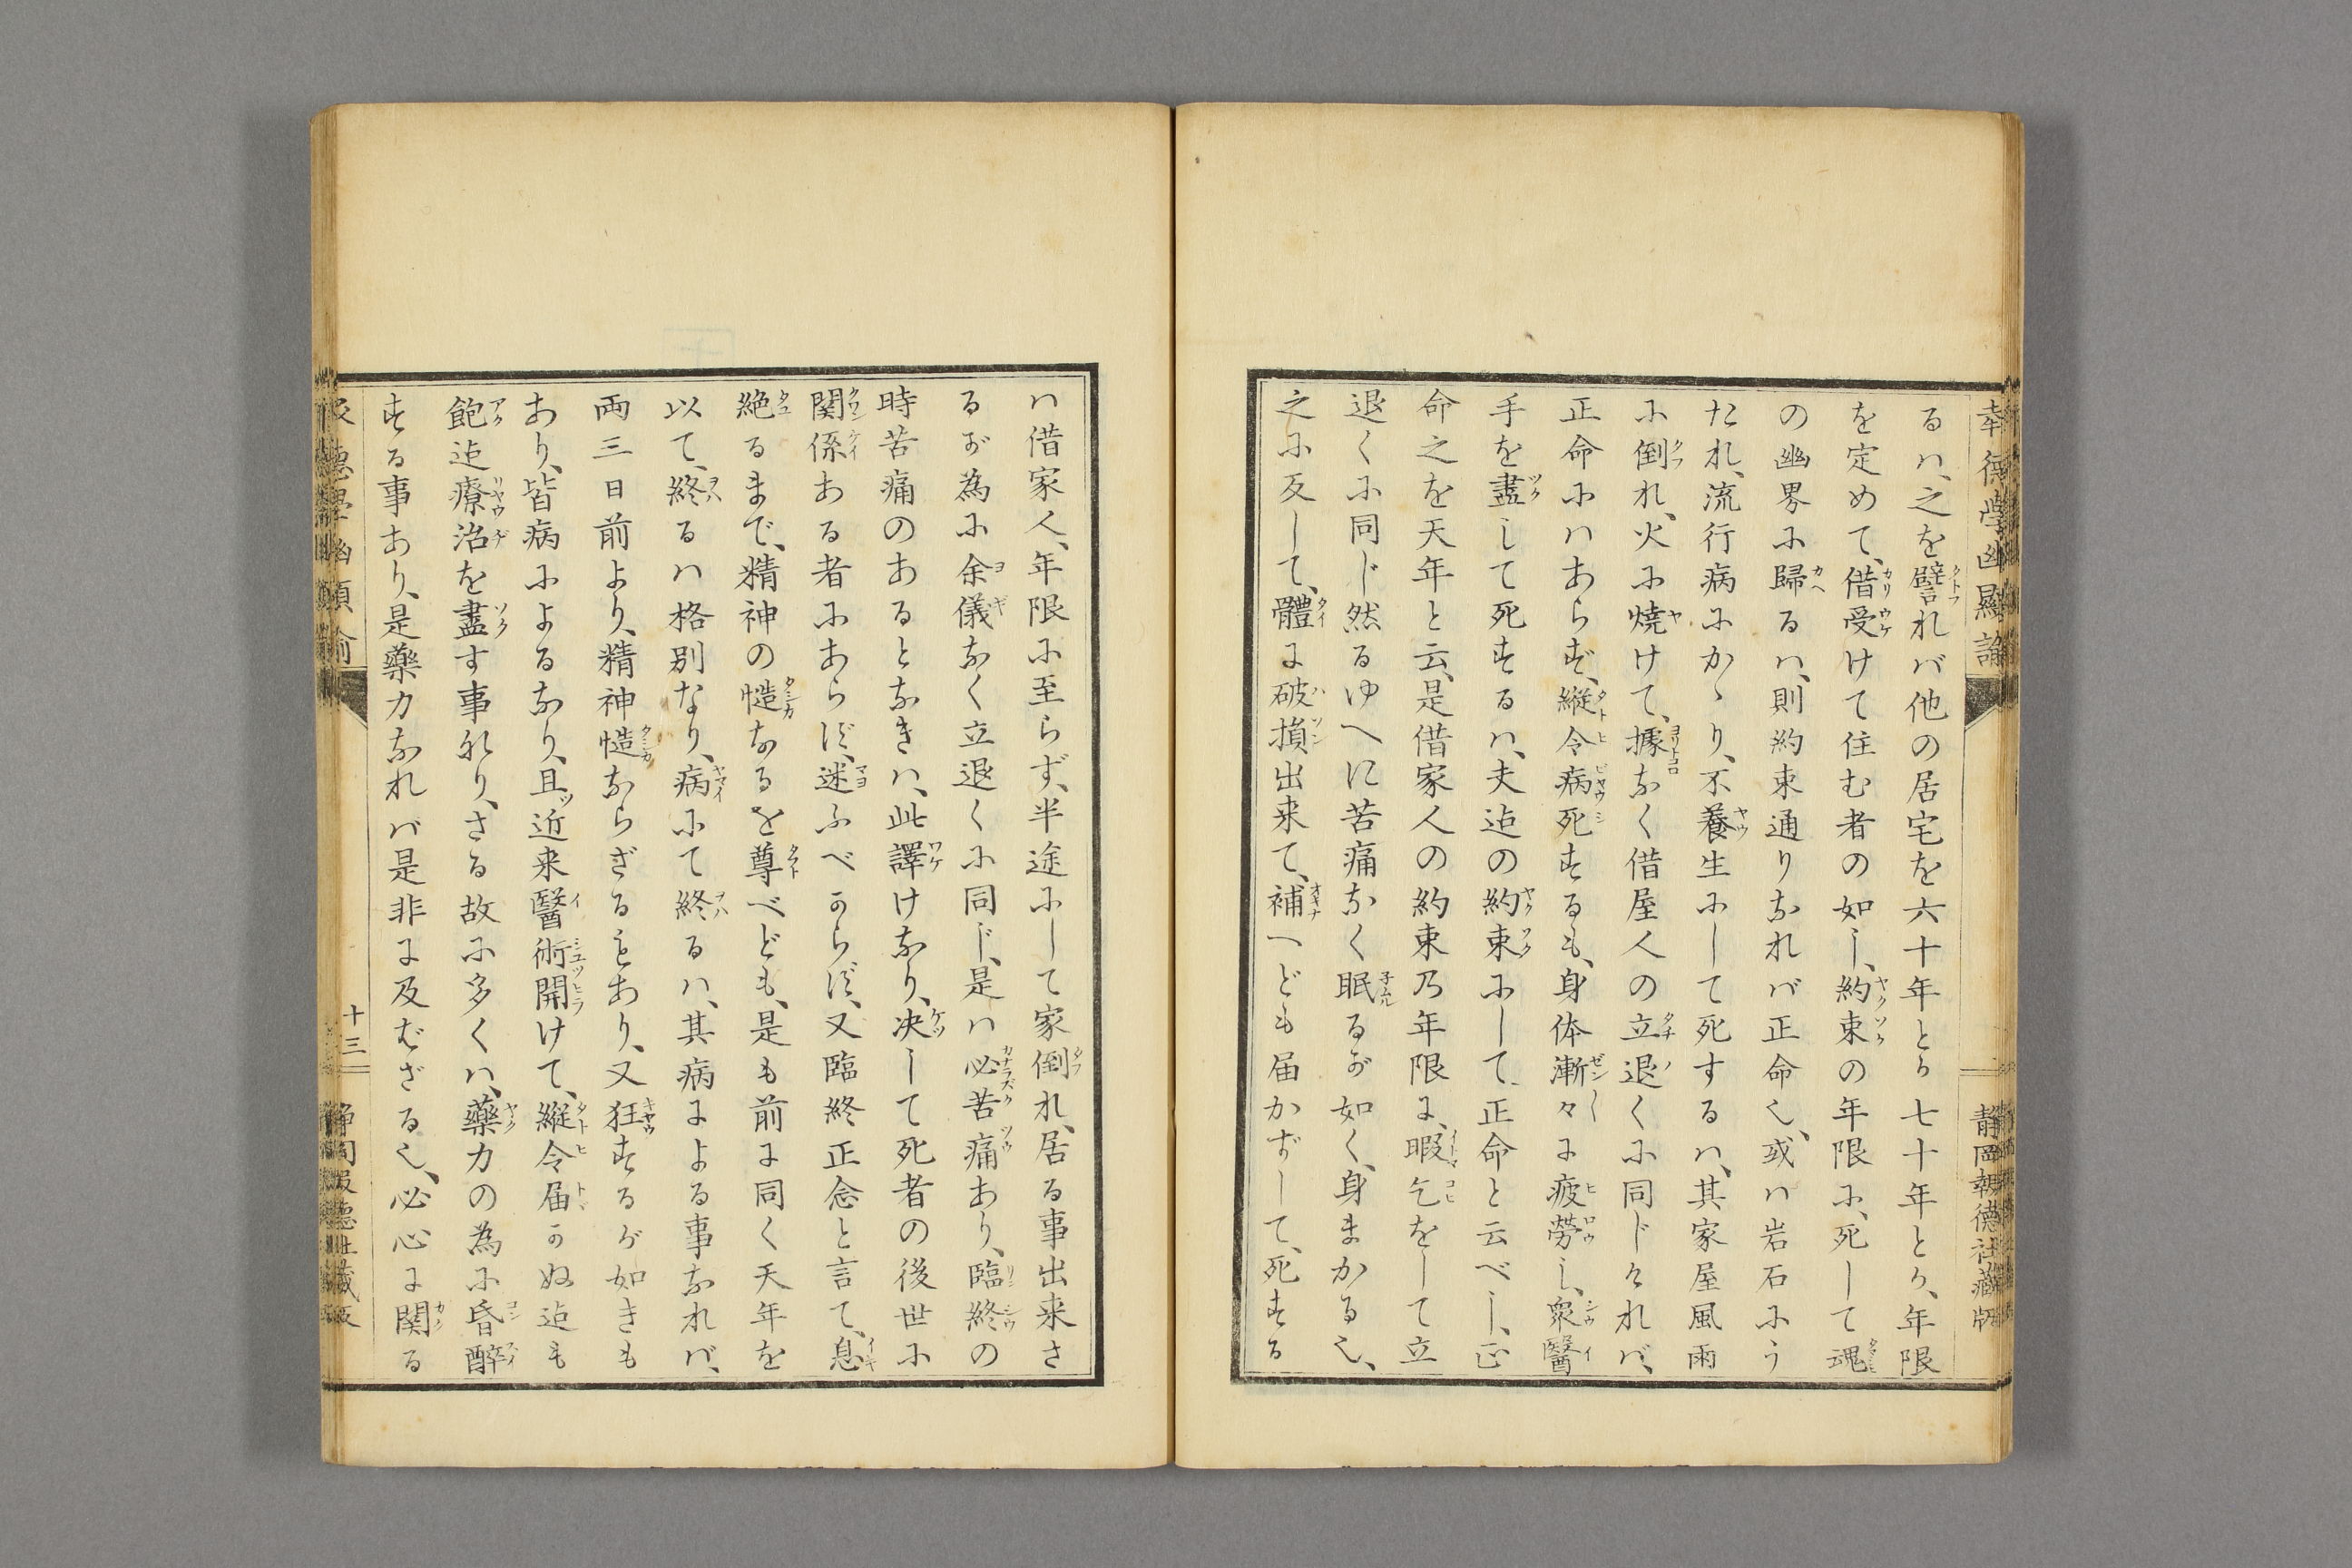 るハ、之を譬れバ他の居宅を六十年とか七十年とか、年限
を定めて、借受けて住む者の如し、約束の年限に、死して魂
の幽界に歸るハ、則約束通りなれバ正命也、或ハ岩石にう
たれ、流行病にかゝり、不養生にして死するハ、其家屋風雨
に倒れ、火に焼けて、據なく借屋人の立退くに同じけれバ、
正命にハあらず、縦令病死するも、身体漸々に疲勞し、衆醫
手を盡して死するハ、夫迠の約束にして正命と云べし、正
命之を天年と云、是借家人の約束乃年限に、暇乞をして立
退くに同じ然るゆへに苦痛なく眠るが如く、身まかる也、
之に反して、體に破損出来て、補へども届かずして、死する
ハ借家人、年限に至らず、半途にして家倒れ、居る事出来さ
るが為に余儀なく立退くに同じ、是ハ必苦痛あり、臨終の
時苦痛のあるとなきハ、此譯けなり、决して死者の後世に
関係ある者にあらず、迷ふべからず、又臨終正念と言て、息
絶るまで、精神の慥なるを尊べども、是も前に同く天年を
以て、終るハ格別なり、病にて終るハ、其病による事なれバ、
両三日前より、精神慥ならざるもあり、又狂するが如きも
あり、皆病によるなり、且ッ近来醫術開けて、縦令届かぬ迠も
飽迠療治を盡す事なり、さる故に多くハ、藥力の為に昏酔
する事あり、是藥力なれバ是非に及ばざる也、必心に関る
十三